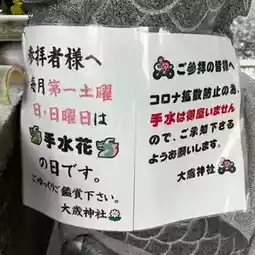 参拝者様へ
毎月第一土曜
日・日曜日は
手水花
の日です。
ごゆっくりご鑑賞下さい。
大歳神社
ご参拝の皆様へ
コロナ拡散防止の為、
手水は御座いません
ので、ご承知下さる
ようお願いします。
大歳神社